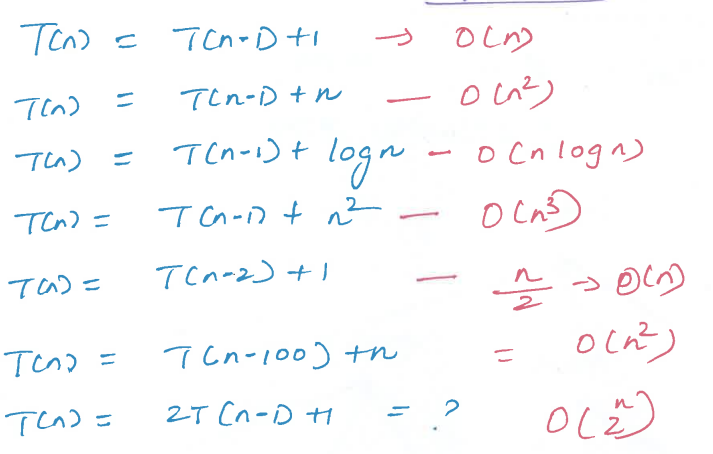 T(n) = T(n-1)+1 → O(n)
T(n) = T(n-1)+n — O(n²)
T(n) = T(n-1)+ log n - O(n log n)
T(n) = T(n-1) + n² — O(n³)
T(n) = T(n-2)+1 — n/2 → O(n)
T(n) = T(n-100)+n = O(n²)
T(n) = 2T(n-1)+1 = ? O(2ⁿ)